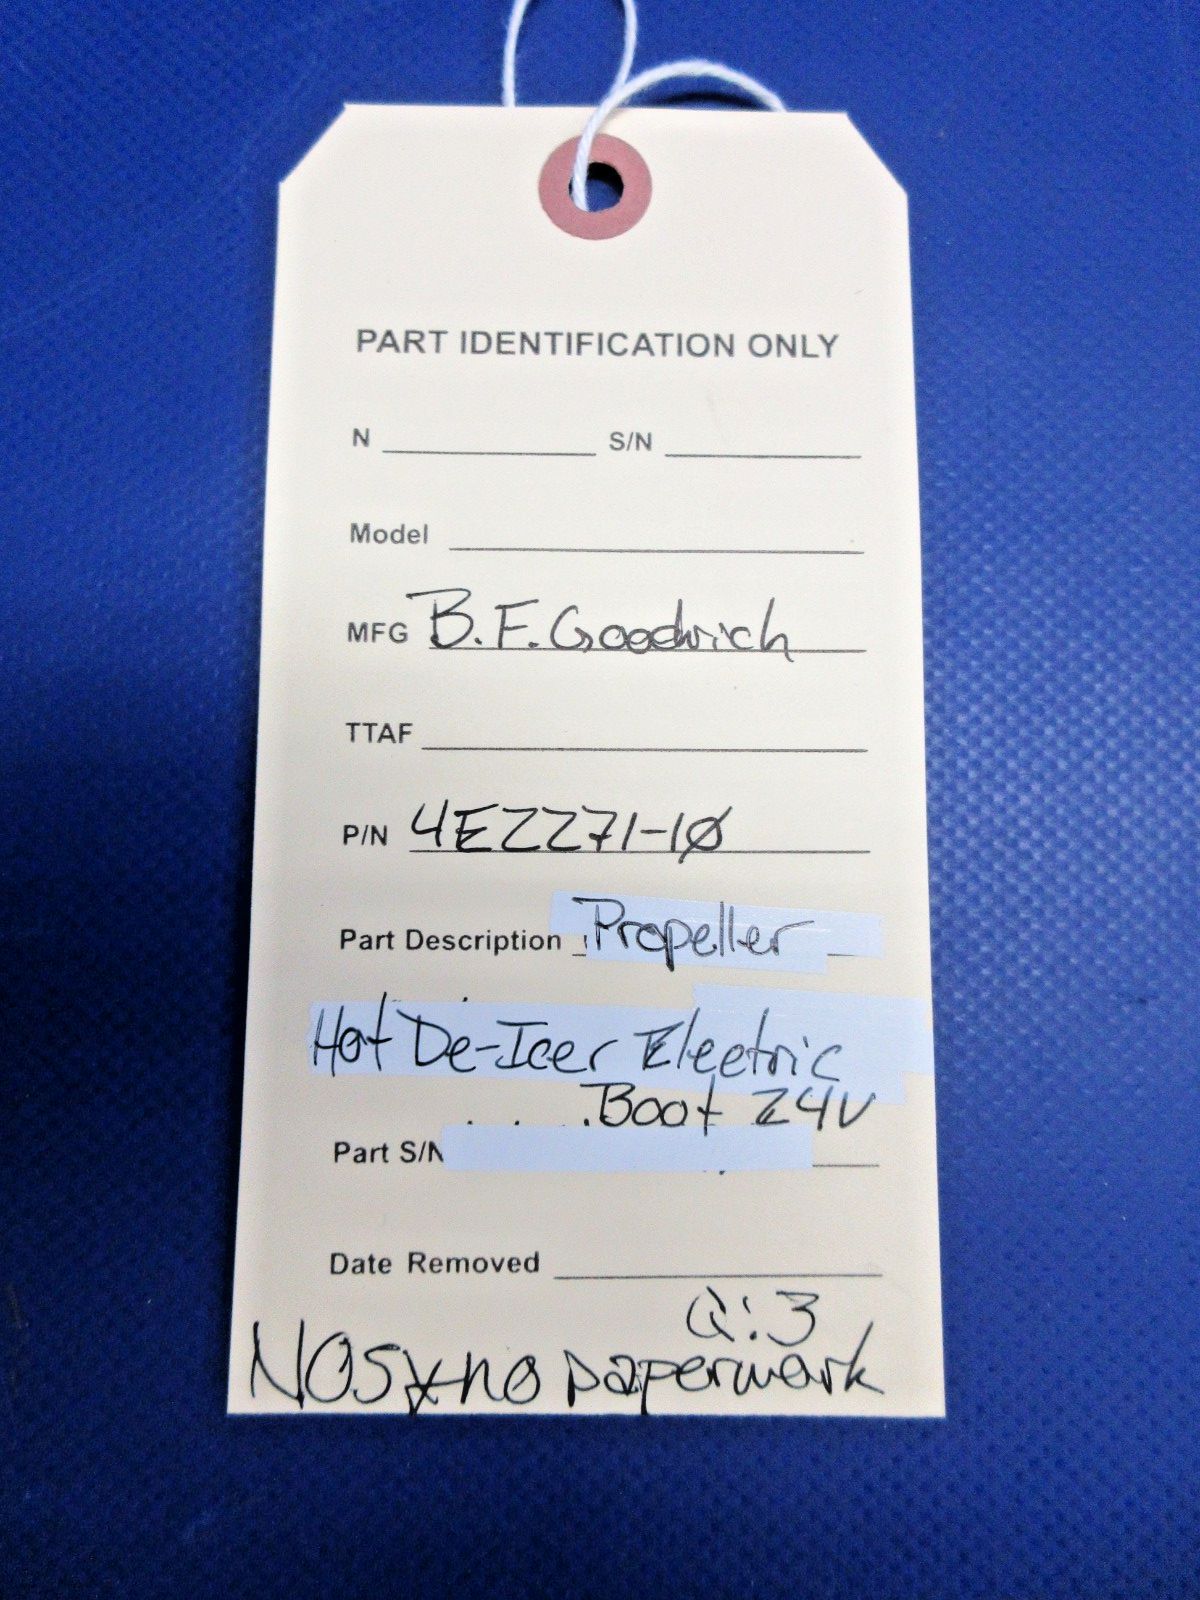 PART IDENTIFICATION ONLY
N S/N
Model
MFG B.F. Goodrich
TTAF
P/N 4E2271-10
Part Description Propeller
Hot De-Icer Electric
Boot 24V
Part S/N
Date Removed
Q:3
NOS no paperwork